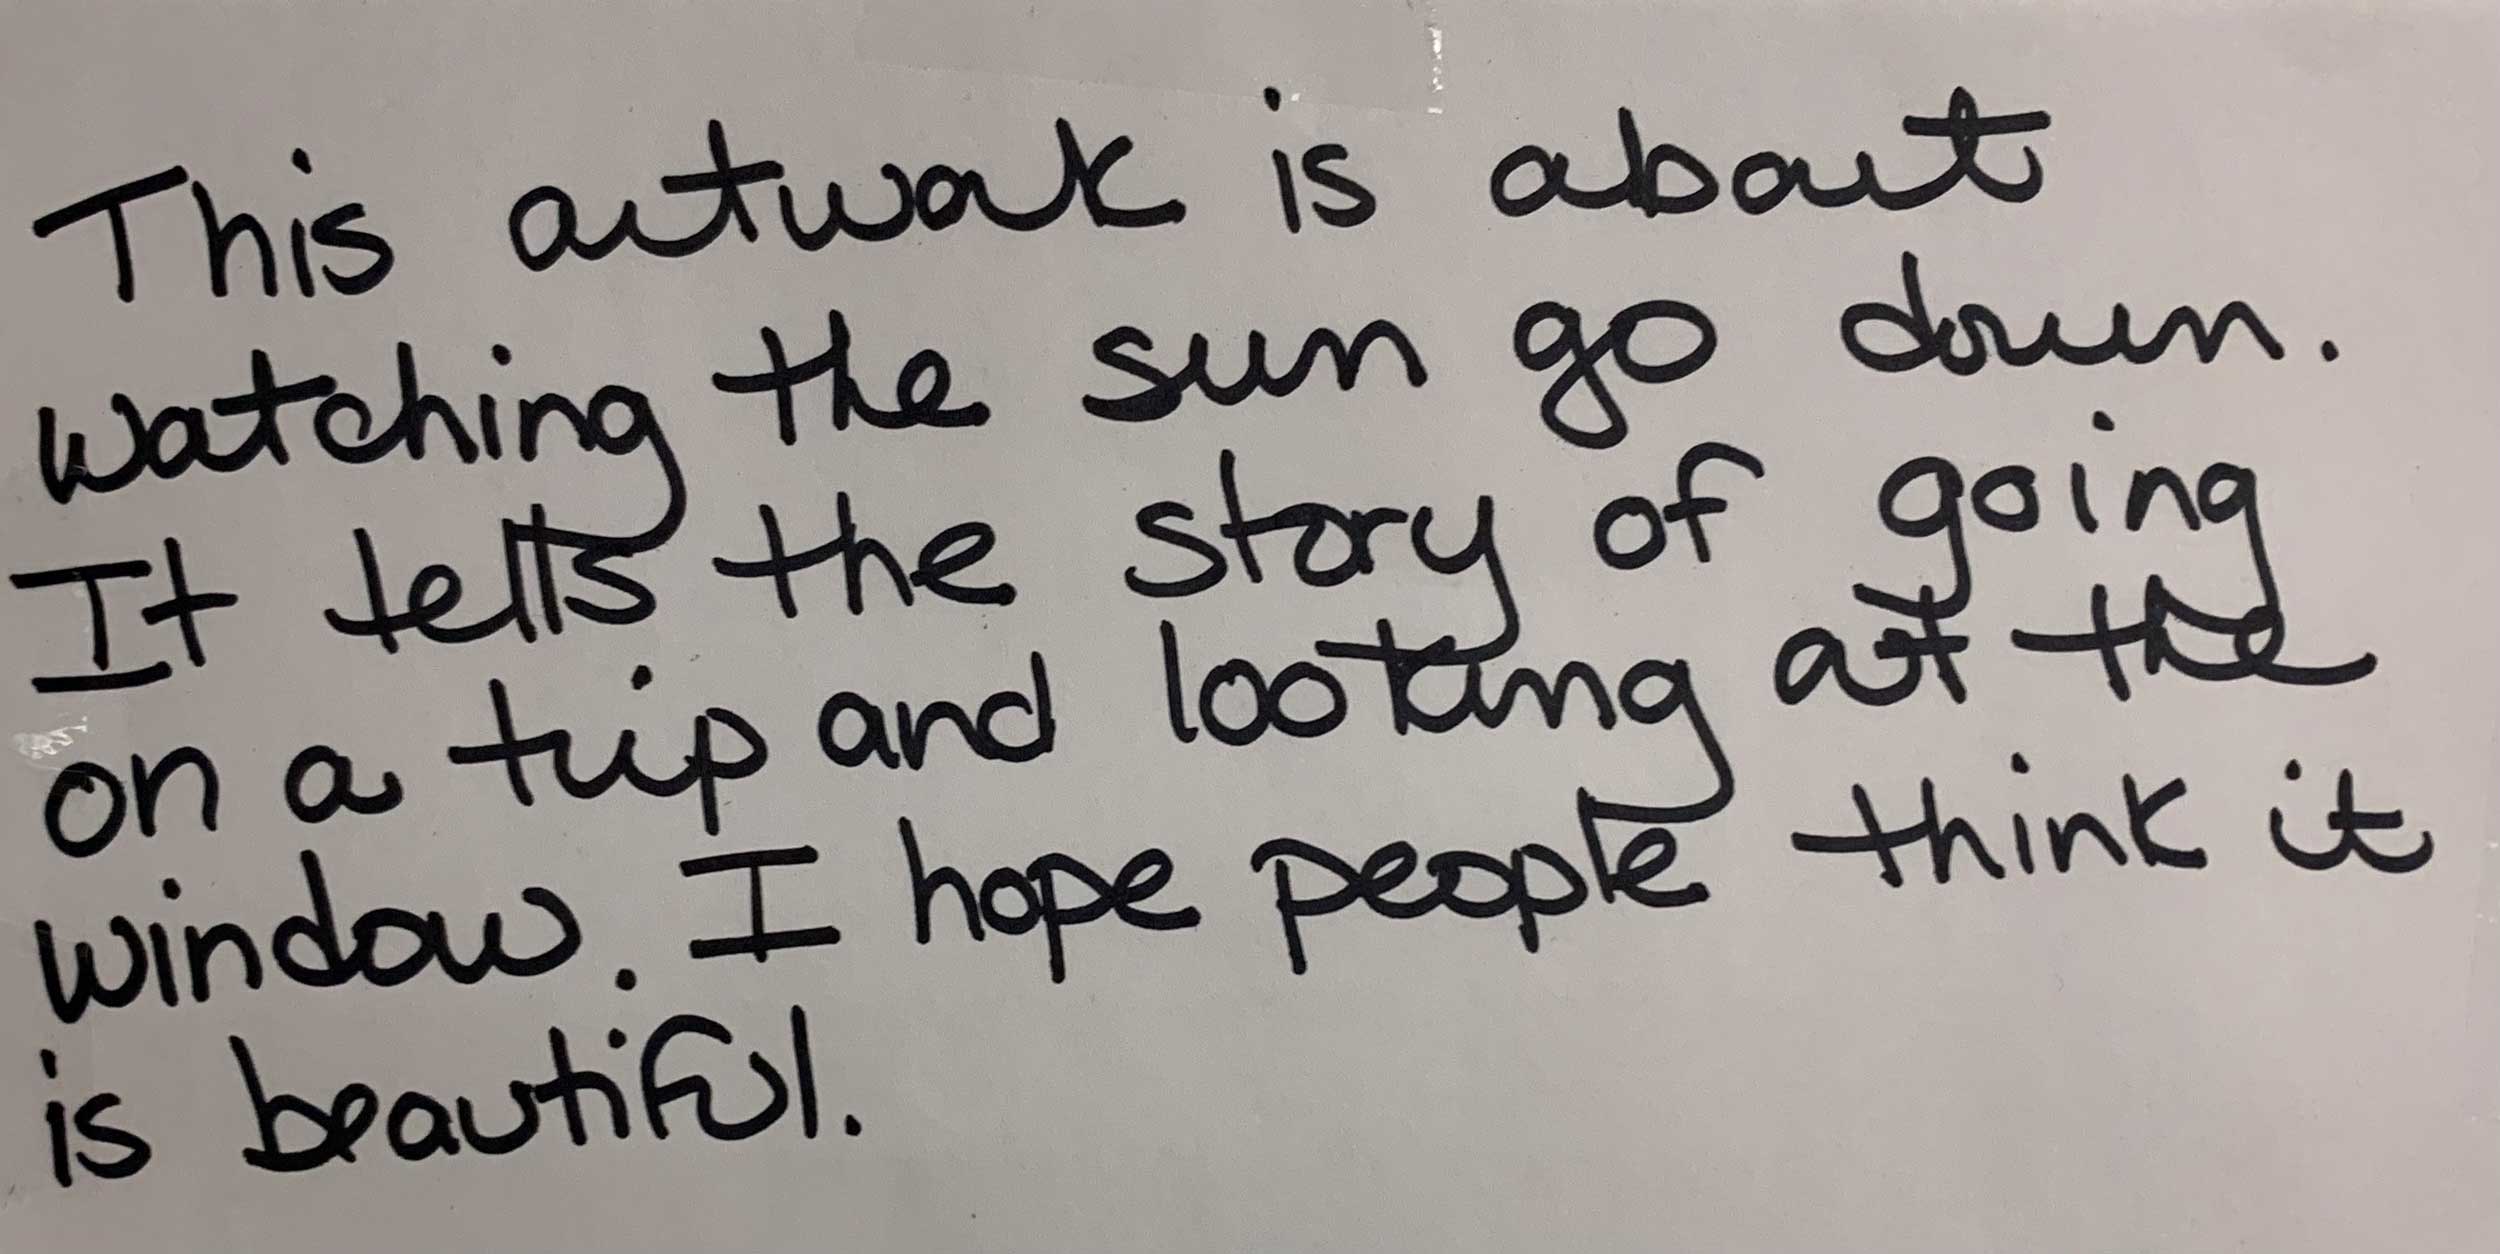 This artwork is about
watching the sun go down.
It tells the story of going
on a trip and looking out the
window. I hope people think it
is beautiful.